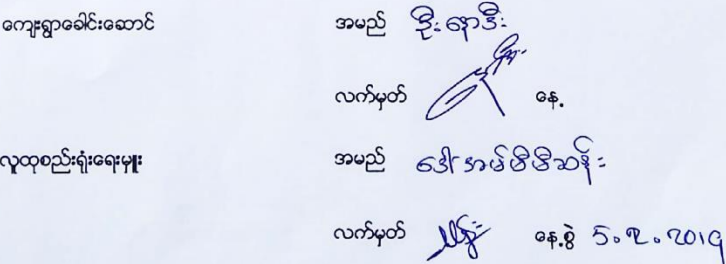 ကျေးရွာခေါင်းဆောင် အမည် ဦးနောဒီး
လက်မှတ် နေ့
လူထုစည်းရုံးရေးမှူး အမည် ဒေါ်အမ်မီမီဆန်း
လက်မှတ် နေ့စွဲ 5.2.2019